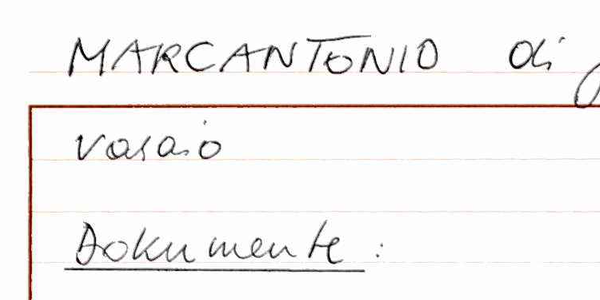 MARCANTONIO di
vasaio
Dokumente: